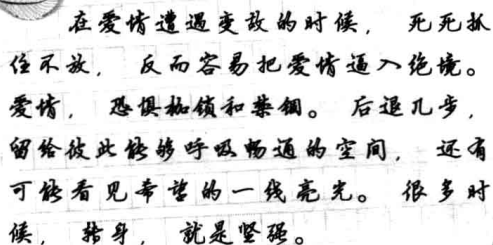 在爱情遭遇变故的时候，死死抓
住不放，反而容易把爱情逼入绝境。
爱情，恐惧枷锁和禁锢。后退几步，
留给彼此能够呼吸畅通的空间，还有
可能看见希望的一线亮光。很多时
候，转身，就是坚强。